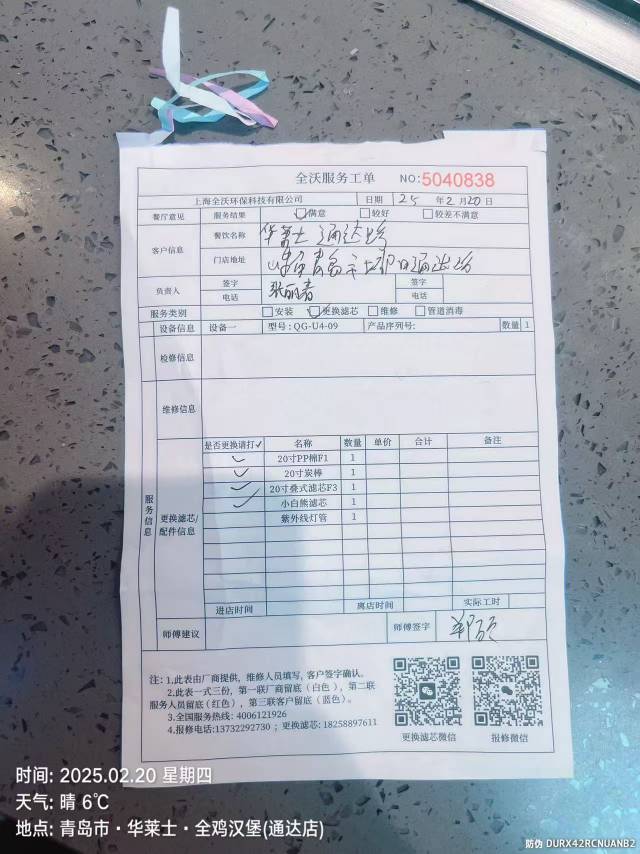 全沃服务工单 NO:5040838
上海全沃环保科技有限公司 日期 25 年 2 月 20 日
餐厅意见 服务结果 满意 较好 较差不满意
客户信息 餐饮名称 华莱士 通达店
门店地址
负责人 签字 签字
电话 电话
服务类别 安装 更换滤芯 维修 管道消毒
设备信息 设备一 型号:QG-U4-09 产品序列号: 数量 1
检修信息
维修信息
服务信息
更换滤芯/配件信息
是否更换请打✓ 名称 数量 单价 合计 备注
✓ 20寸PP棉F1 1
✓ 20寸炭棒 1
✓ 20寸叠式滤芯F3 1
✓ 小白熊滤芯 1
紫外线灯管 1
进店时间 离店时间 实际工时
师傅建议 师傅签字
注: 1.此表由厂商提供, 维修人员填写, 客户签字确认。
2.此表一式三份, 第一联厂商留底 (白色), 第二联
服务人员留底(红色), 第三联客户留底 (蓝色)。
3.全国服务热线: 4006121926
4.报修电话:13732292730 ; 更换滤芯: 18258897611
更换滤芯微信 报修微信
时间: 2025.02.20 星期四
天气: 晴 6℃
地点: 青岛市·华莱士·全鸡汉堡(通达店)
防伪 DURX42RCNUANB2